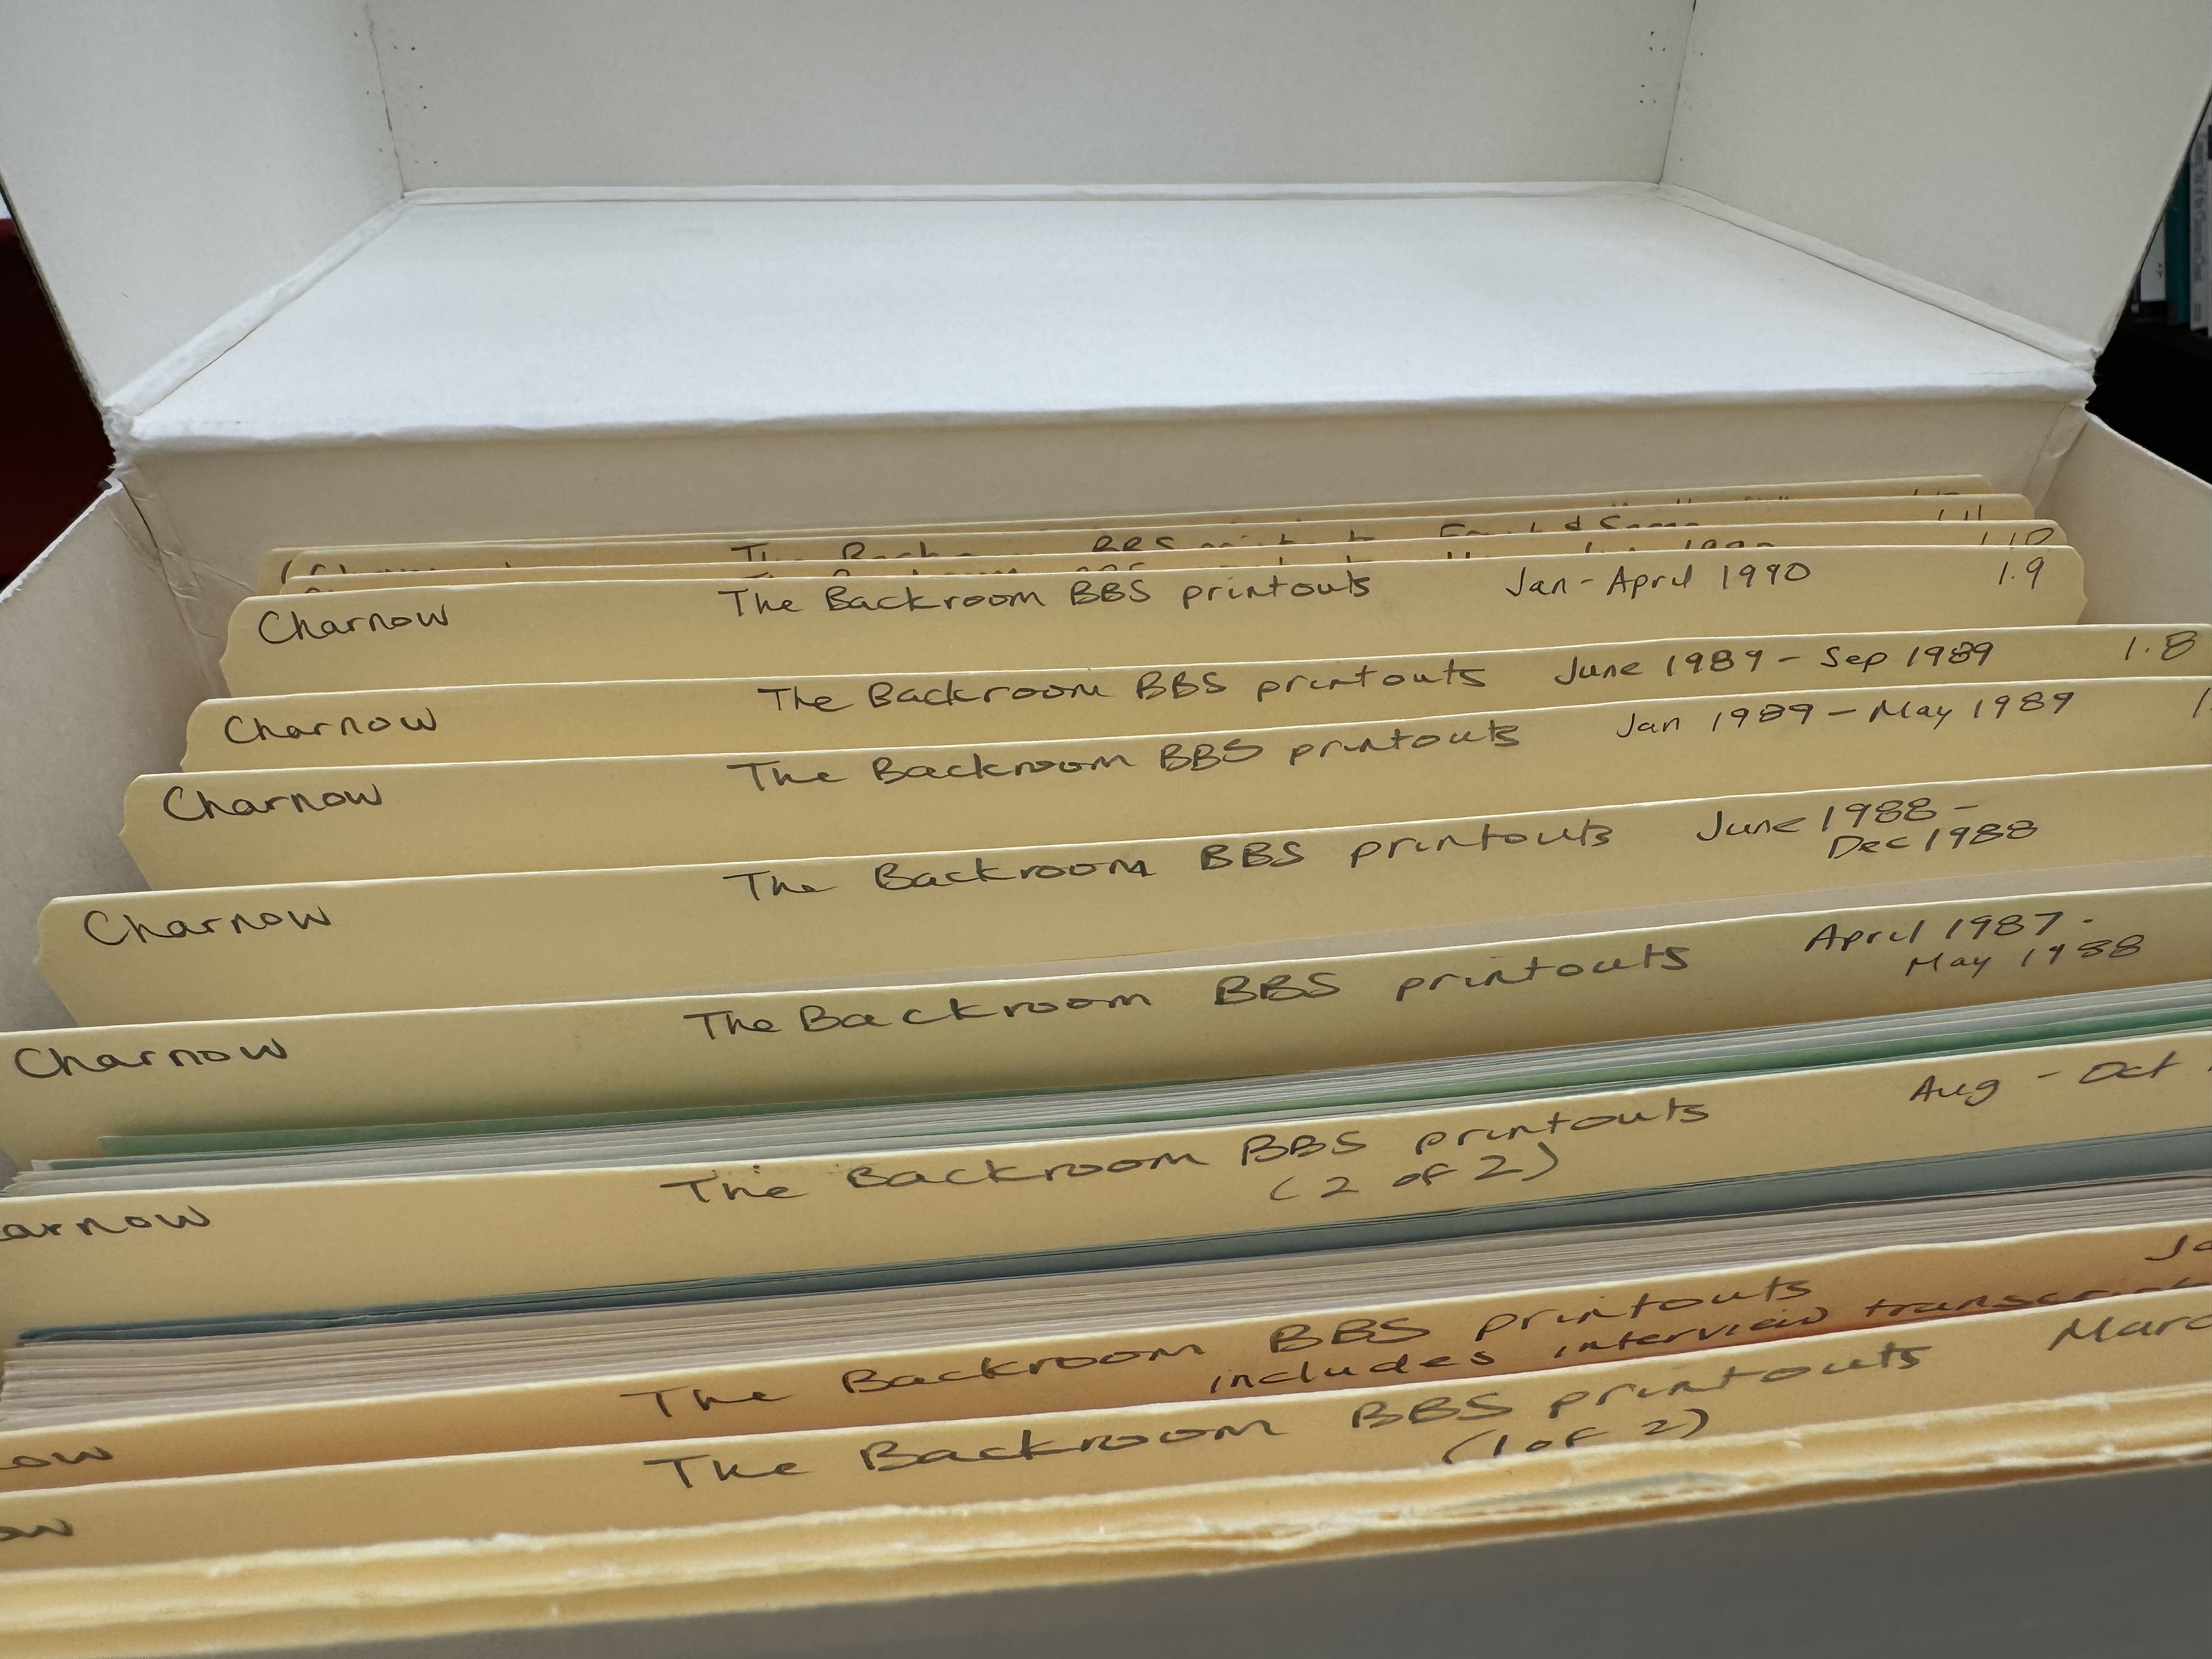 The Backroom BBS printouts
1.11
1.10
Charnow The Backroom BBS printouts Jan-April 1990 1.9
Charnow The Backroom BBS printouts June 1989 - Sep 1989 1.8
Charnow The Backroom BBS printouts Jan 1989 - May 1989
Charnow The Backroom BBS printouts June 1988 -
Dec 1988
Charnow The Backroom BBS printouts April 1987 -
May 1988
arnow The Backroom BBS printouts Aug - Oct
(2 of 2)
ow The Backroom BBS printouts
includes interview
ow The Backroom BBS printouts
(1 of 2)